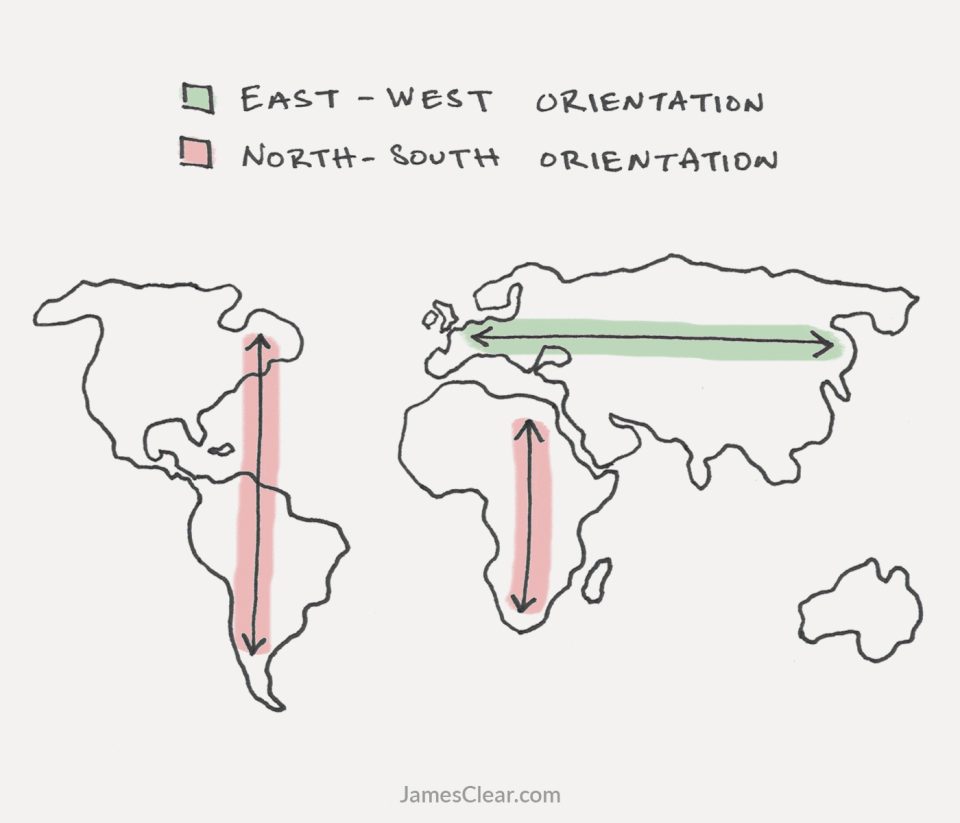 EAST - WEST ORIENTATION
NORTH - SOUTH ORIENTATION
JamesClear.com